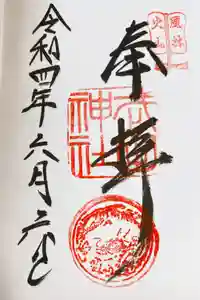 風林
火山
奉拝
武田
神社
令和四年六月六日